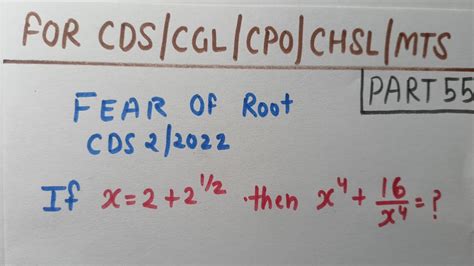 FOR CDS/CGL/CPO/CHSL/MTS
PART 55
FEAR OF Root
CDS 2/2022
If x=2+2^1/2 then x^4+16/x^4=?